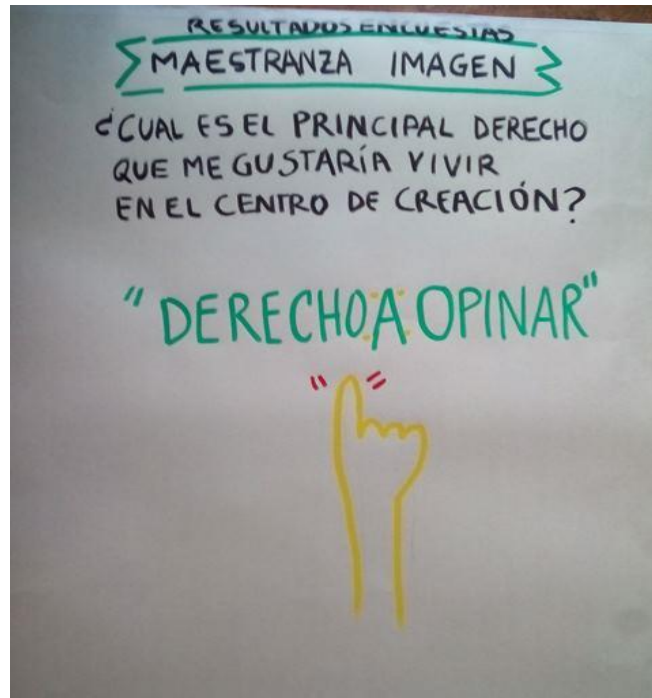 RESULTADOS ENCUESTAS
MAESTRANZA IMAGEN
¿CUAL ES EL PRINCIPAL DERECHO
QUE ME GUSTARÍA VIVIR
EN EL CENTRO DE CREACIÓN?
"DERECHO A OPINAR"